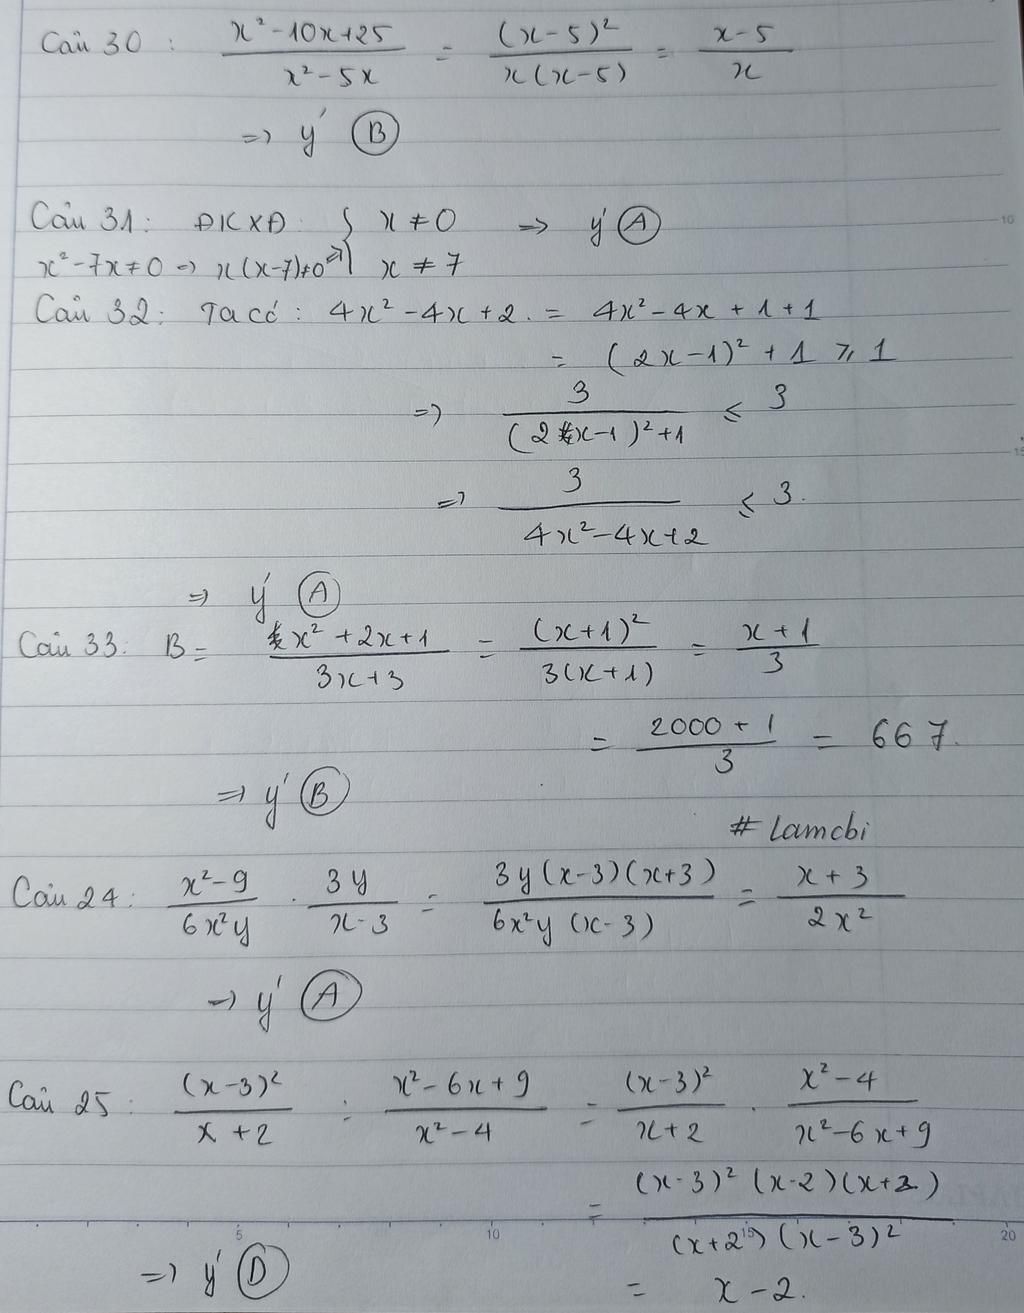 Câu 30 : x²-10x+25 / x²-5x = (x-5)² / x(x-5) = x-5 / x
=> ý B
Câu 31: ĐKXĐ: { x ≠ 0 => ý A
x²-7x≠0 => x(x-7)≠0 => x ≠ 7
Câu 32: Ta có: 4x²-4x+2 = 4x²-4x+1+1
= (2x-1)²+1 ⩾ 1
=> 3 / (2x-1)²+1 ⩽ 3
=> 3 / 4x²-4x+2 ⩽ 3.
=> ý A
Câu 33: B = x²+2x+1 / 3x+3 = (x+1)² / 3(x+1) = x+1 / 3
= 2000+1 / 3 = 667.
=> ý B
# Lamcbi
Câu 24: x²-9 / 6x²y . 3y / x-3 = 3y(x-3)(x+3) / 6x²y(x-3) = x+3 / 2x²
=> ý A
Câu 25: (x-3)² / x+2 : x²-6x+9 / x²-4 = (x-3)² / x+2 . x²-4 / x²-6x+9
= (x-3)²(x-2)(x+2) / (x+2)(x-3)²
=> ý D
= x-2.
5 10 15 20
10
15